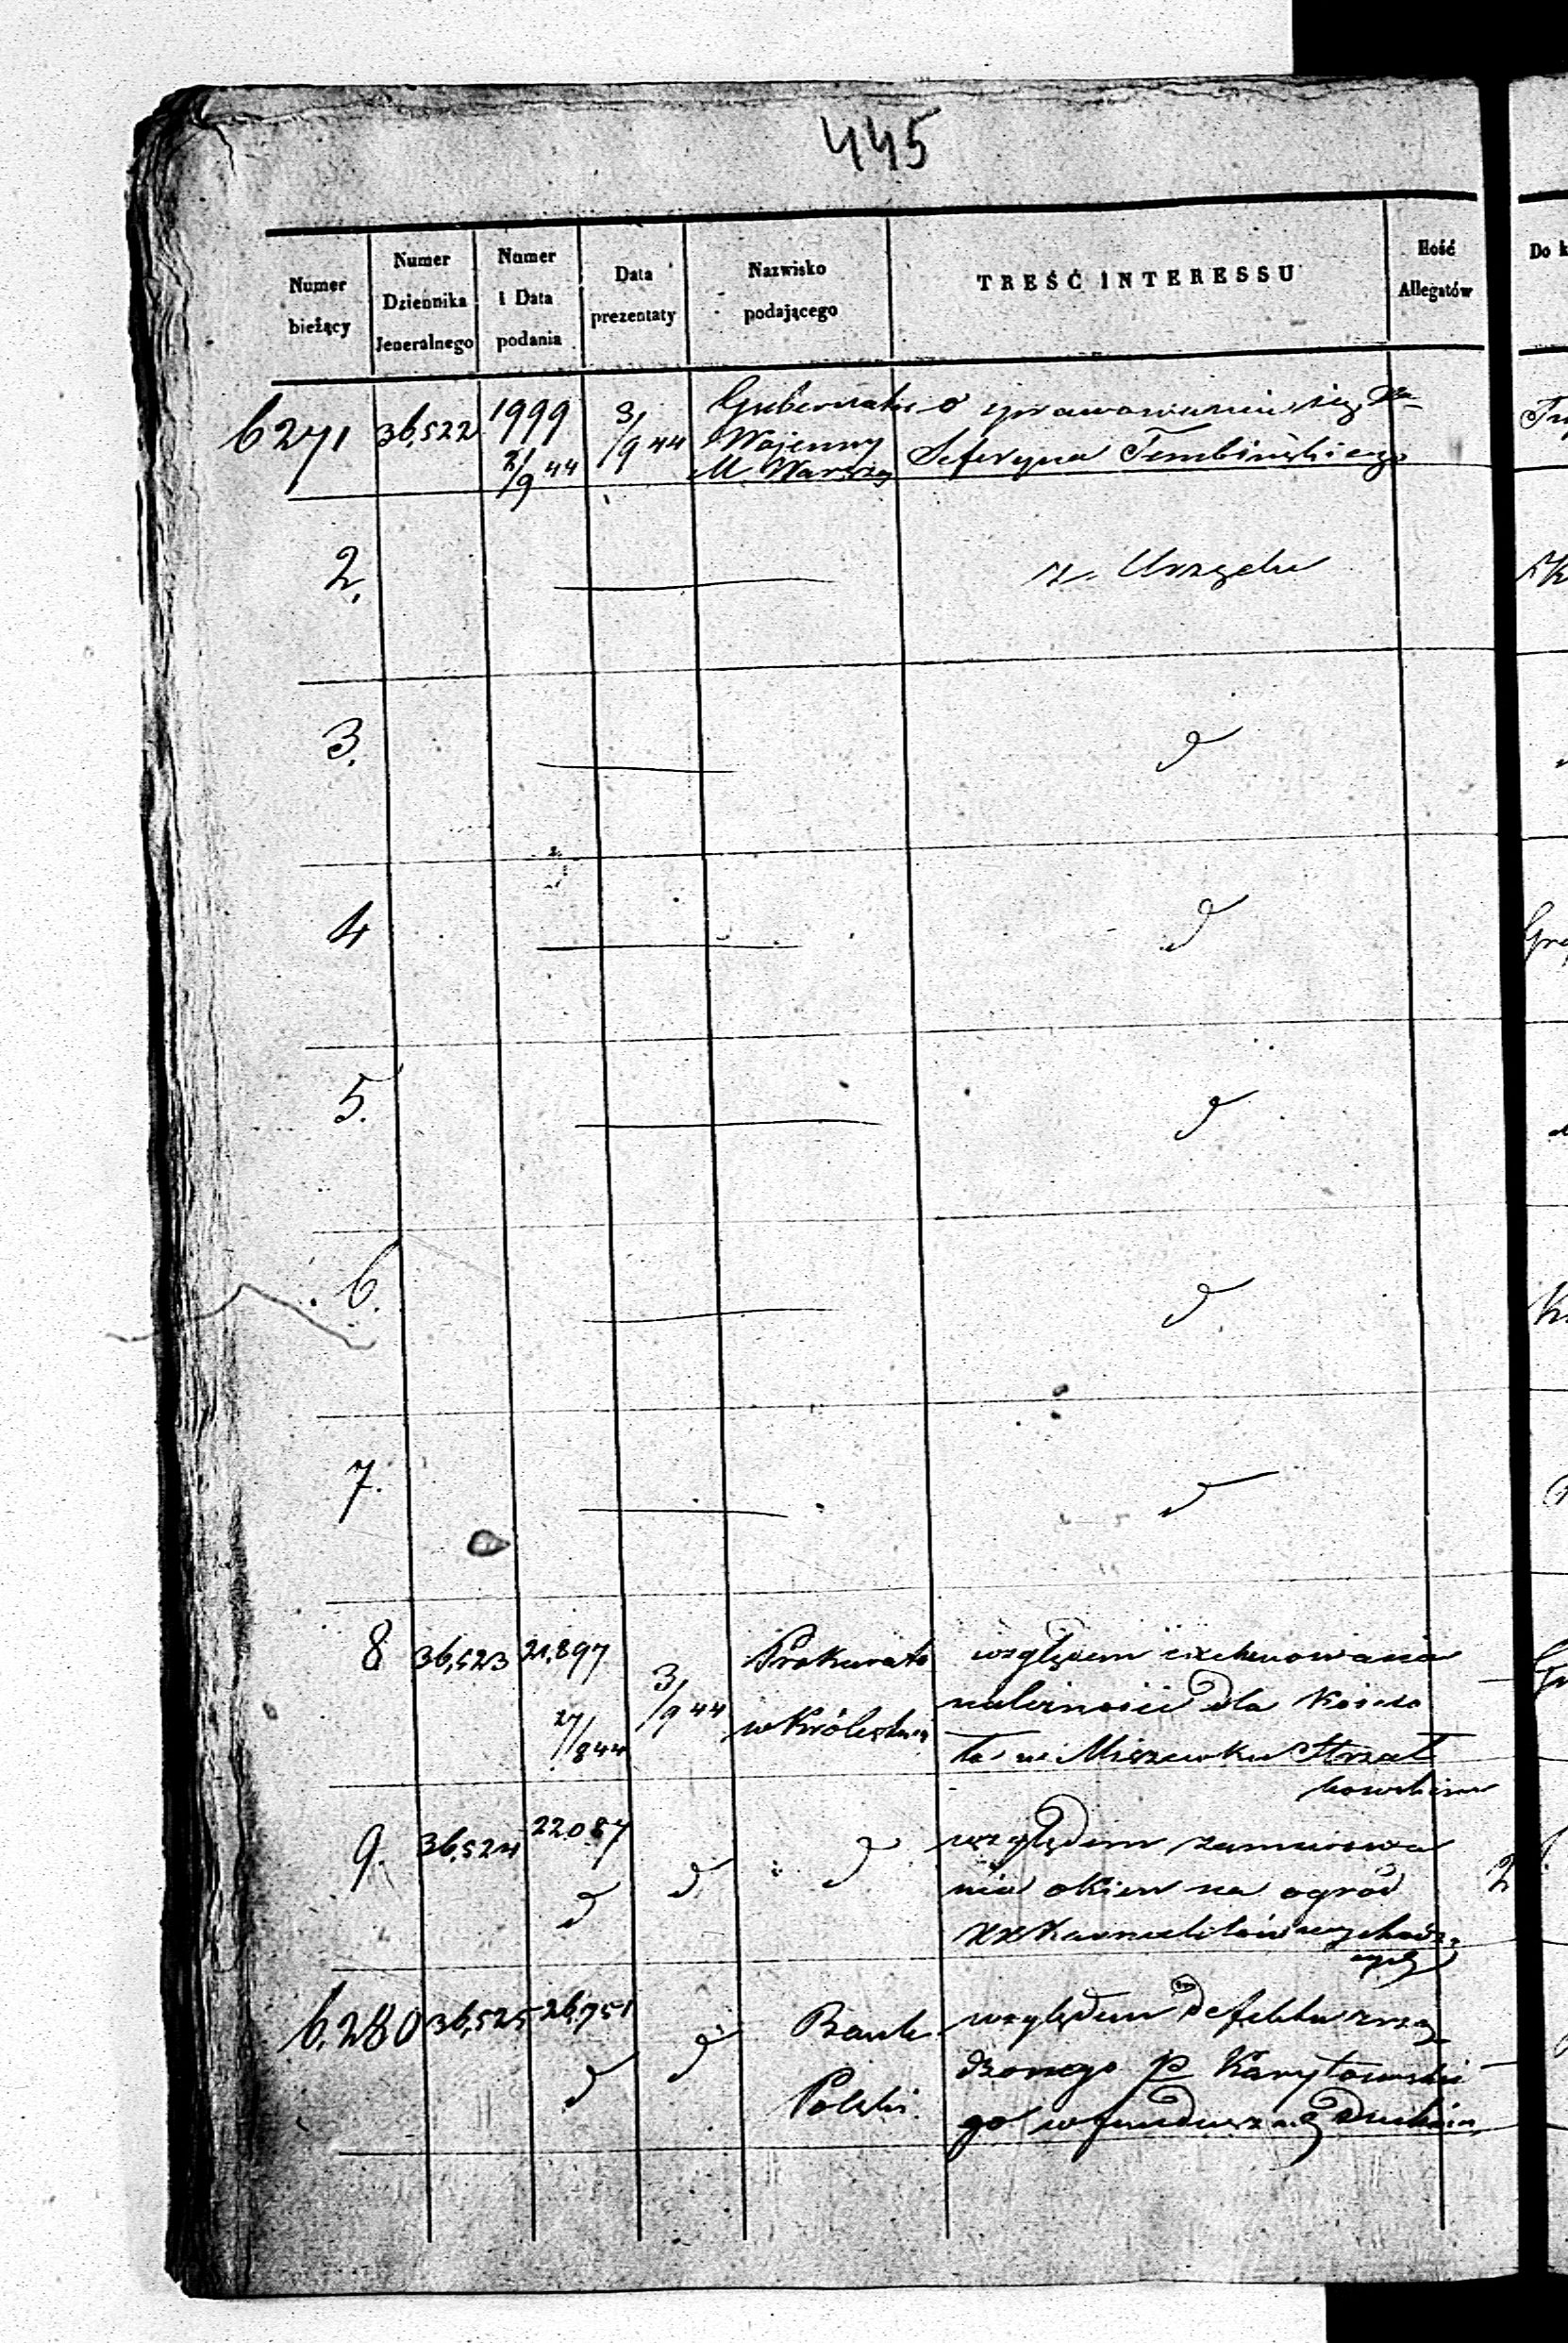 445
Numer bieżący
Numer Dziennika Jeneralnego
Numer i Data podania
Data prezentaty
Nazwisko podającego
TREŚĆ INTERESSU
Ilość Allegatów
Do k
6271 36,522 1999 2/9 44 3/9 44 Gubernator Wojenny M. Warszawy o sprawowaniu się
Seferyna Tembińskiego
2. z Urzędu
3. d
4 d
5. d
6. d
7. d
8 36,523 21,897 27/844 3/9 44 Prokurato w Królestwie względem
należności dla Kościo
ła w Miszewku Strzał
kowskim
9. 36,524 22087 d d d względem zamurowa
nia okien na ogród
XX Karmelitów wychodzą
cych
6,280 36,525 26,751 d d Bank Polski względem defektu zrzą
dzonego p
go w funduszach